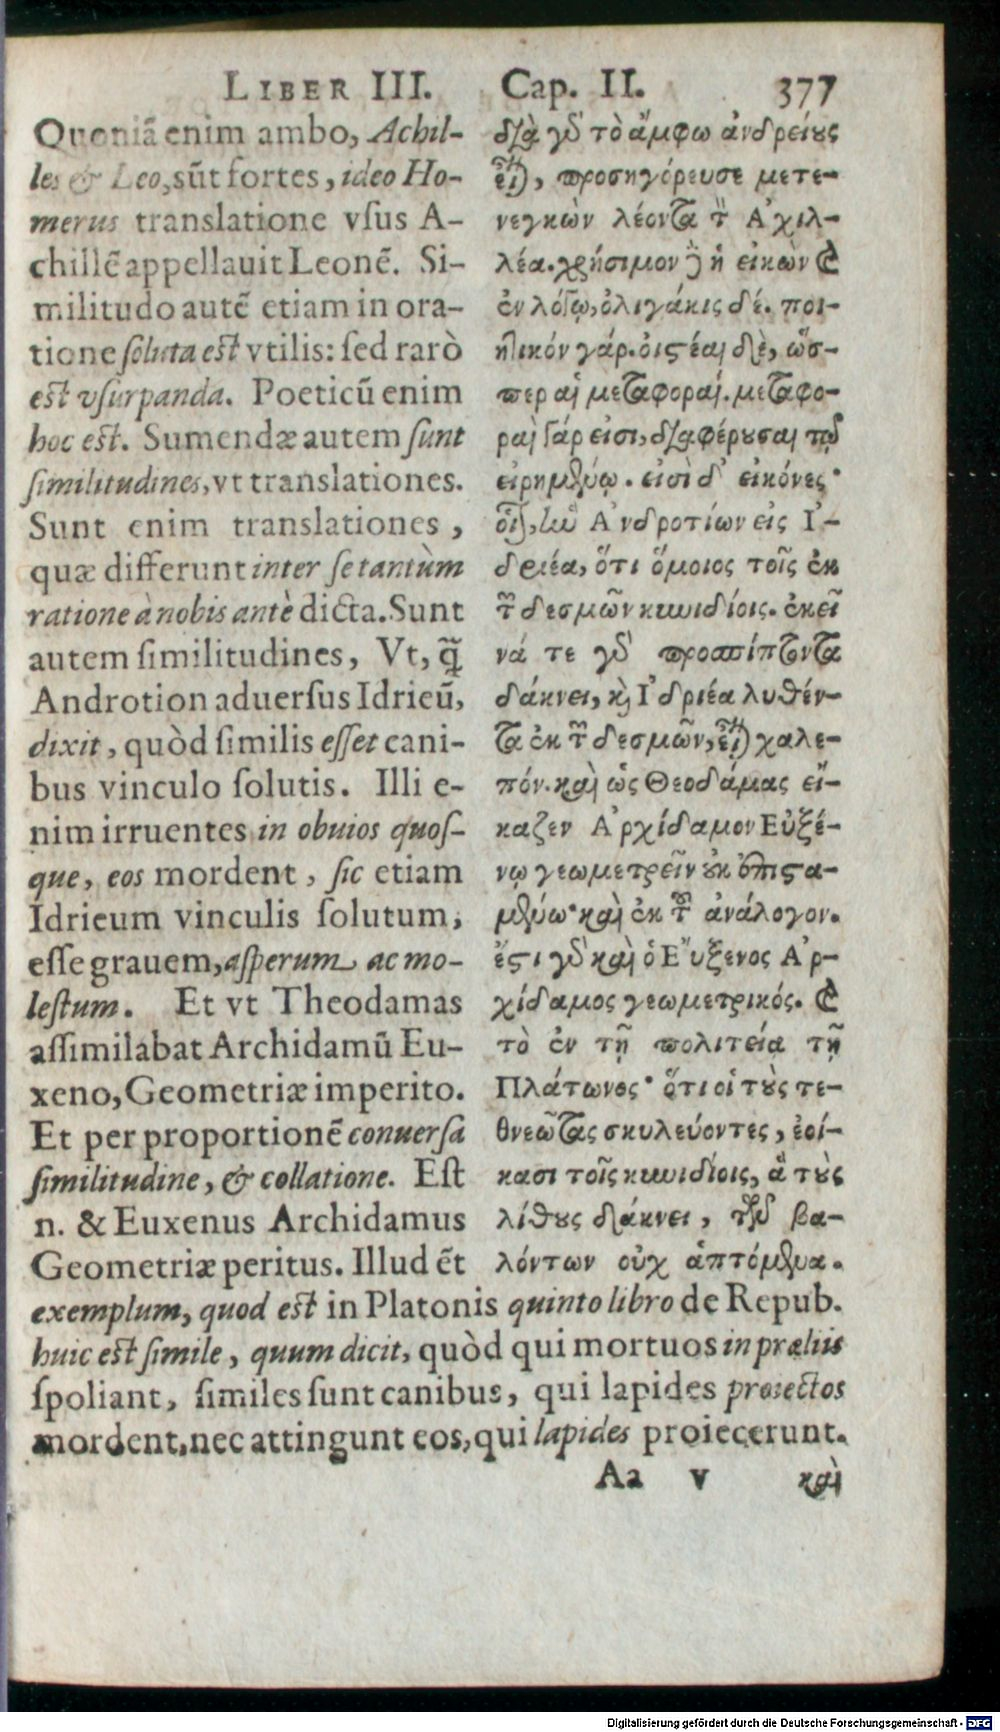 LIBER III. Cap. II. 377
Quoniã enim ambo, Achil-
les & Leo, sũt fortes, ideo Ho-
merus translatione vsus A-
chillẽ appellauit Leonẽ. Si-
militudo autẽ etiam in ora-
tione soluta est vtilis: sed rarò
est vsurpanda. Poeticũ enim
hoc est. Sumendæ autem sunt
similitudines, vt translationes.
Sunt enim translationes,
quæ differunt inter se tantùm
ratione à nobis antè dicta. Sunt
autem similitudines, Vt, q̃
Androtion aduersus Idrieũ,
dixit, quòd similis esset cani-
bus vinculo solutis. Illi e-
nim irruentes in obuios quos-
que, eos mordent, sic etiam
Idrieum vinculis solutum,
esse grauem, asperum ac mo-
lestum. Et vt Theodamas
assimilabat Archidamũ Eu-
xeno, Geometriæ imperito.
Et per proportionẽ conuersa
similitudine, & collatione. Est
n. & Euxenus Archidamus
Geometriæ peritus. Illud ẽt
διὰ γὸ τὸ ἄμφω ἀνδρείους
εἶναι, προσηγόρευσε μετε-
νεγκὼν λέοντα τὸν Ἀχιλ-
λέα. χρήσιμον δὲ ἡ εἰκὼν καὶ
ἐν λόγῳ, ὀλιγάκις δέ. ποι-
ητικόν γάρ. οἰστέαι δὲ, ὥσ-
περ αἱ μεταφοραί. μεταφο-
ραὶ γάρ εἰσι, διαφέρουσαι τῷ
εἰρημένῳ. εἰσὶ δ' εἰκόνες·
οἷον, ἣν Ἀνδροτίων εἰς Ἰ-
δριέα, ὅτι ὅμοιος τοῖς ἐκ
τῶν δεσμῶν κυνιδίοις. ἐκεῖ
νά τε γὸ προσπίπτοντα
δάκνει, καὶ Ἰδριέα λυθέν-
τα ἐκ τῶν δεσμῶν, εἶναι χαλε-
πόν. καὶ ὡς Θεοδάμας εἴ-
καζεν Ἀρχίδαμον Εὐξέ-
νῳ γεωμετρεῖν οὐκ ἐπιστα-
μένῳ· καὶ ἐκ τοῦ ἀνάλογον.
ἔστι γὸ καὶ ὁ Εὔξενος Ἀρ-
χίδαμος γεωμετρικός. καὶ
τὸ ἐν τῇ πολιτείᾳ τῇ
Πλάτωνος· ὅτι οἱ τοὺς τε-
θνεῶτας σκυλεύοντες, ἐοί-
κασι τοῖς κυνιδίοις, ἃ τοὺς
λίθους δάκνει, τῶν βα-
λόντων οὐχ ἁπτόμενα.
exemplum, quod est in Platonis quinto libro de Repub.
huic est simile, quum dicit, quòd qui mortuos in præliis
spoliant, similes sunt canibus, qui lapides proiectos
mordent, nec attingunt eos, qui lapides proiecerunt.
Aa v καὶ
Digitalisierung gefördert durch die Deutsche Forschungsgemeinschaft - DFG